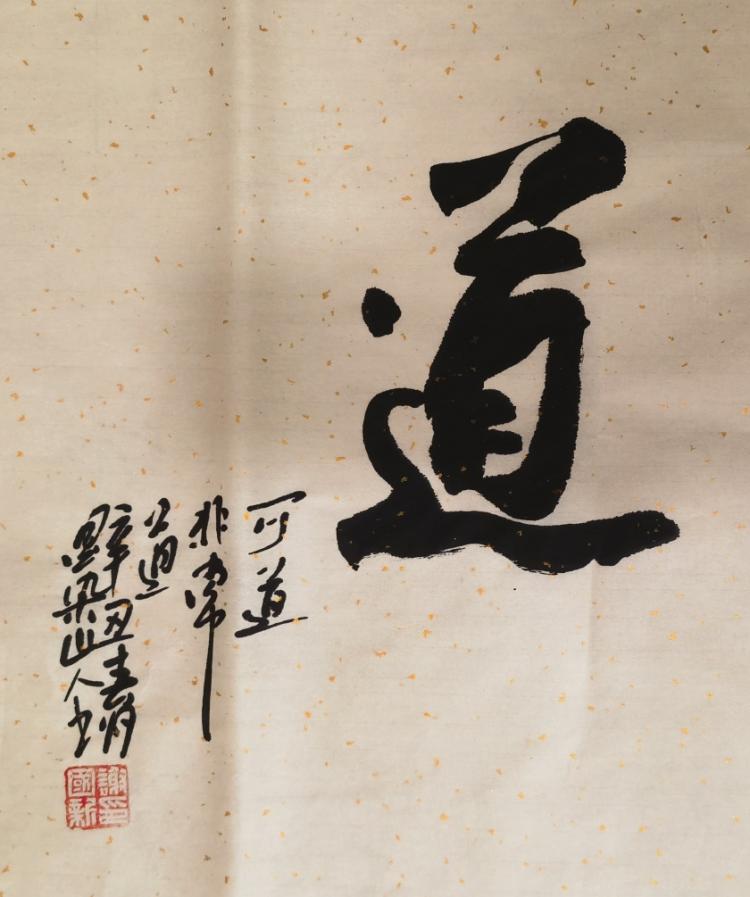 道
可道
非常
道
辛丑
梁山人書
謝印
國新